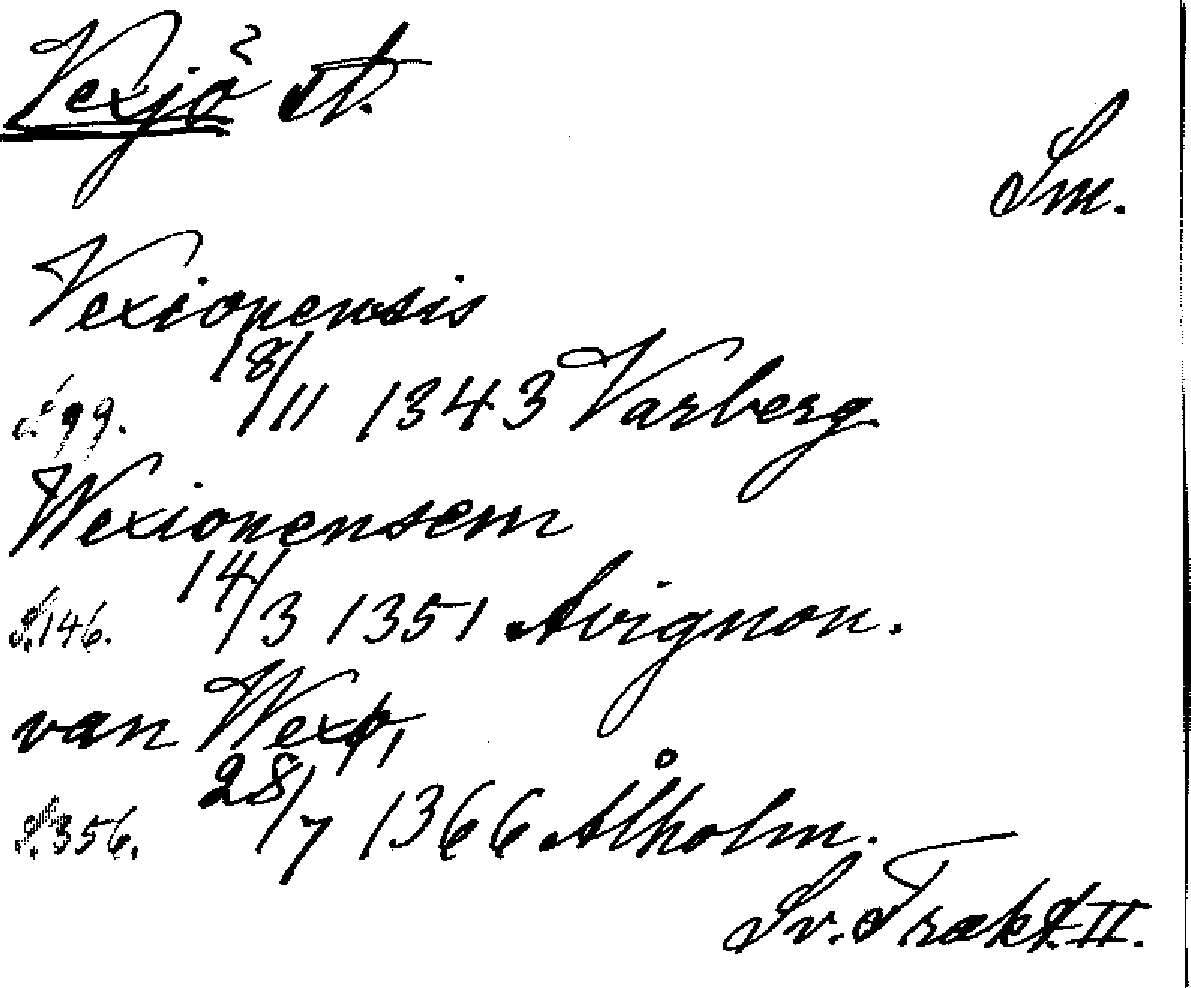 Vexjö st.
Sm.
Vexionensis
S. 99. 18/11 1343 Varberg
Wexionensem
S. 146. 14/3 1351 Avignon.
van
S. 356. 28/7 1366 Ålholm.
Sv. Trakt. II.